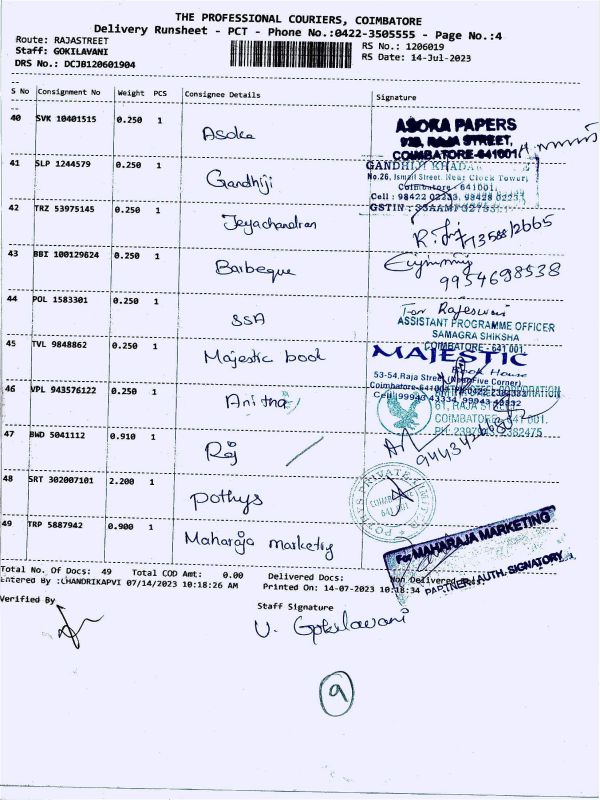 THE PROFESSIONAL COURIERS, COIMBATORE
Delivery Runsheet - PCT - Phone No.:0422-3505555 - Page No.:4
Route: RAJASTREET
RS No.: 1206019
Staff: GOKILAVANI
RS Date: 14-Jul-2023
DRS No.: DCJB120601904
S No Consignment No Weight PCS Consignee Details Signature
40 SVK 10401515 0.250 1 Asoka
ASOKA PAPERS
RAJA STREET,
COIMBATORE-641001
41 SLP 1244579 0.250 1 Gandhiji
GANDHIJI KHADAR
No.26, Ismail Street, Near Clock Tower,
Coimbatore - 641001.
Cell : 98422 02233, 98428
GSTIN :
42 TRZ 53975145 0.250 1 Jeyachandran
43 BBI 100129624 0.250 1 Barbeque
9954698538
44 POL 1583301 0.250 1 SSA
For Rajeswari
ASSISTANT PROGRAMME OFFICER
SAMAGRA SHIKSHA
COIMBATORE - 641 001.
45 TVL 9848862 0.250 1 Majestic book
MAJESTIC
Book House
53-54,Raja Street,(Near Five Corner)
Coimbatore-641001
Cell:99943 43334, 99943 43332
46 VPL 943576122 0.250 1 Anitha
CORPORATION
61, RAJA STREET
COIMBATORE - 641 001.
47 BWD 5041112 0.910 1 Raj
48 SRT 302007101 2.200 1 Pothys
POTHYS PRIVATE LIMITED
COIMBATORE
641 001
49 TRP 5887942 0.900 1 Maharaja marketing
For MAHARAJA MARKETING
PARTNER / AUTH. SIGNATORY
Total No. Of Docs: 49 Total COD Amt: 0.00 Delivered Docs: Non Delivered
Entered By :CHANDRIKAPVI 07/14/2023 10:18:26 AM Printed On: 14-07-2023 10:18:34
Verified By
Staff Signature
V. Gokilavani
9